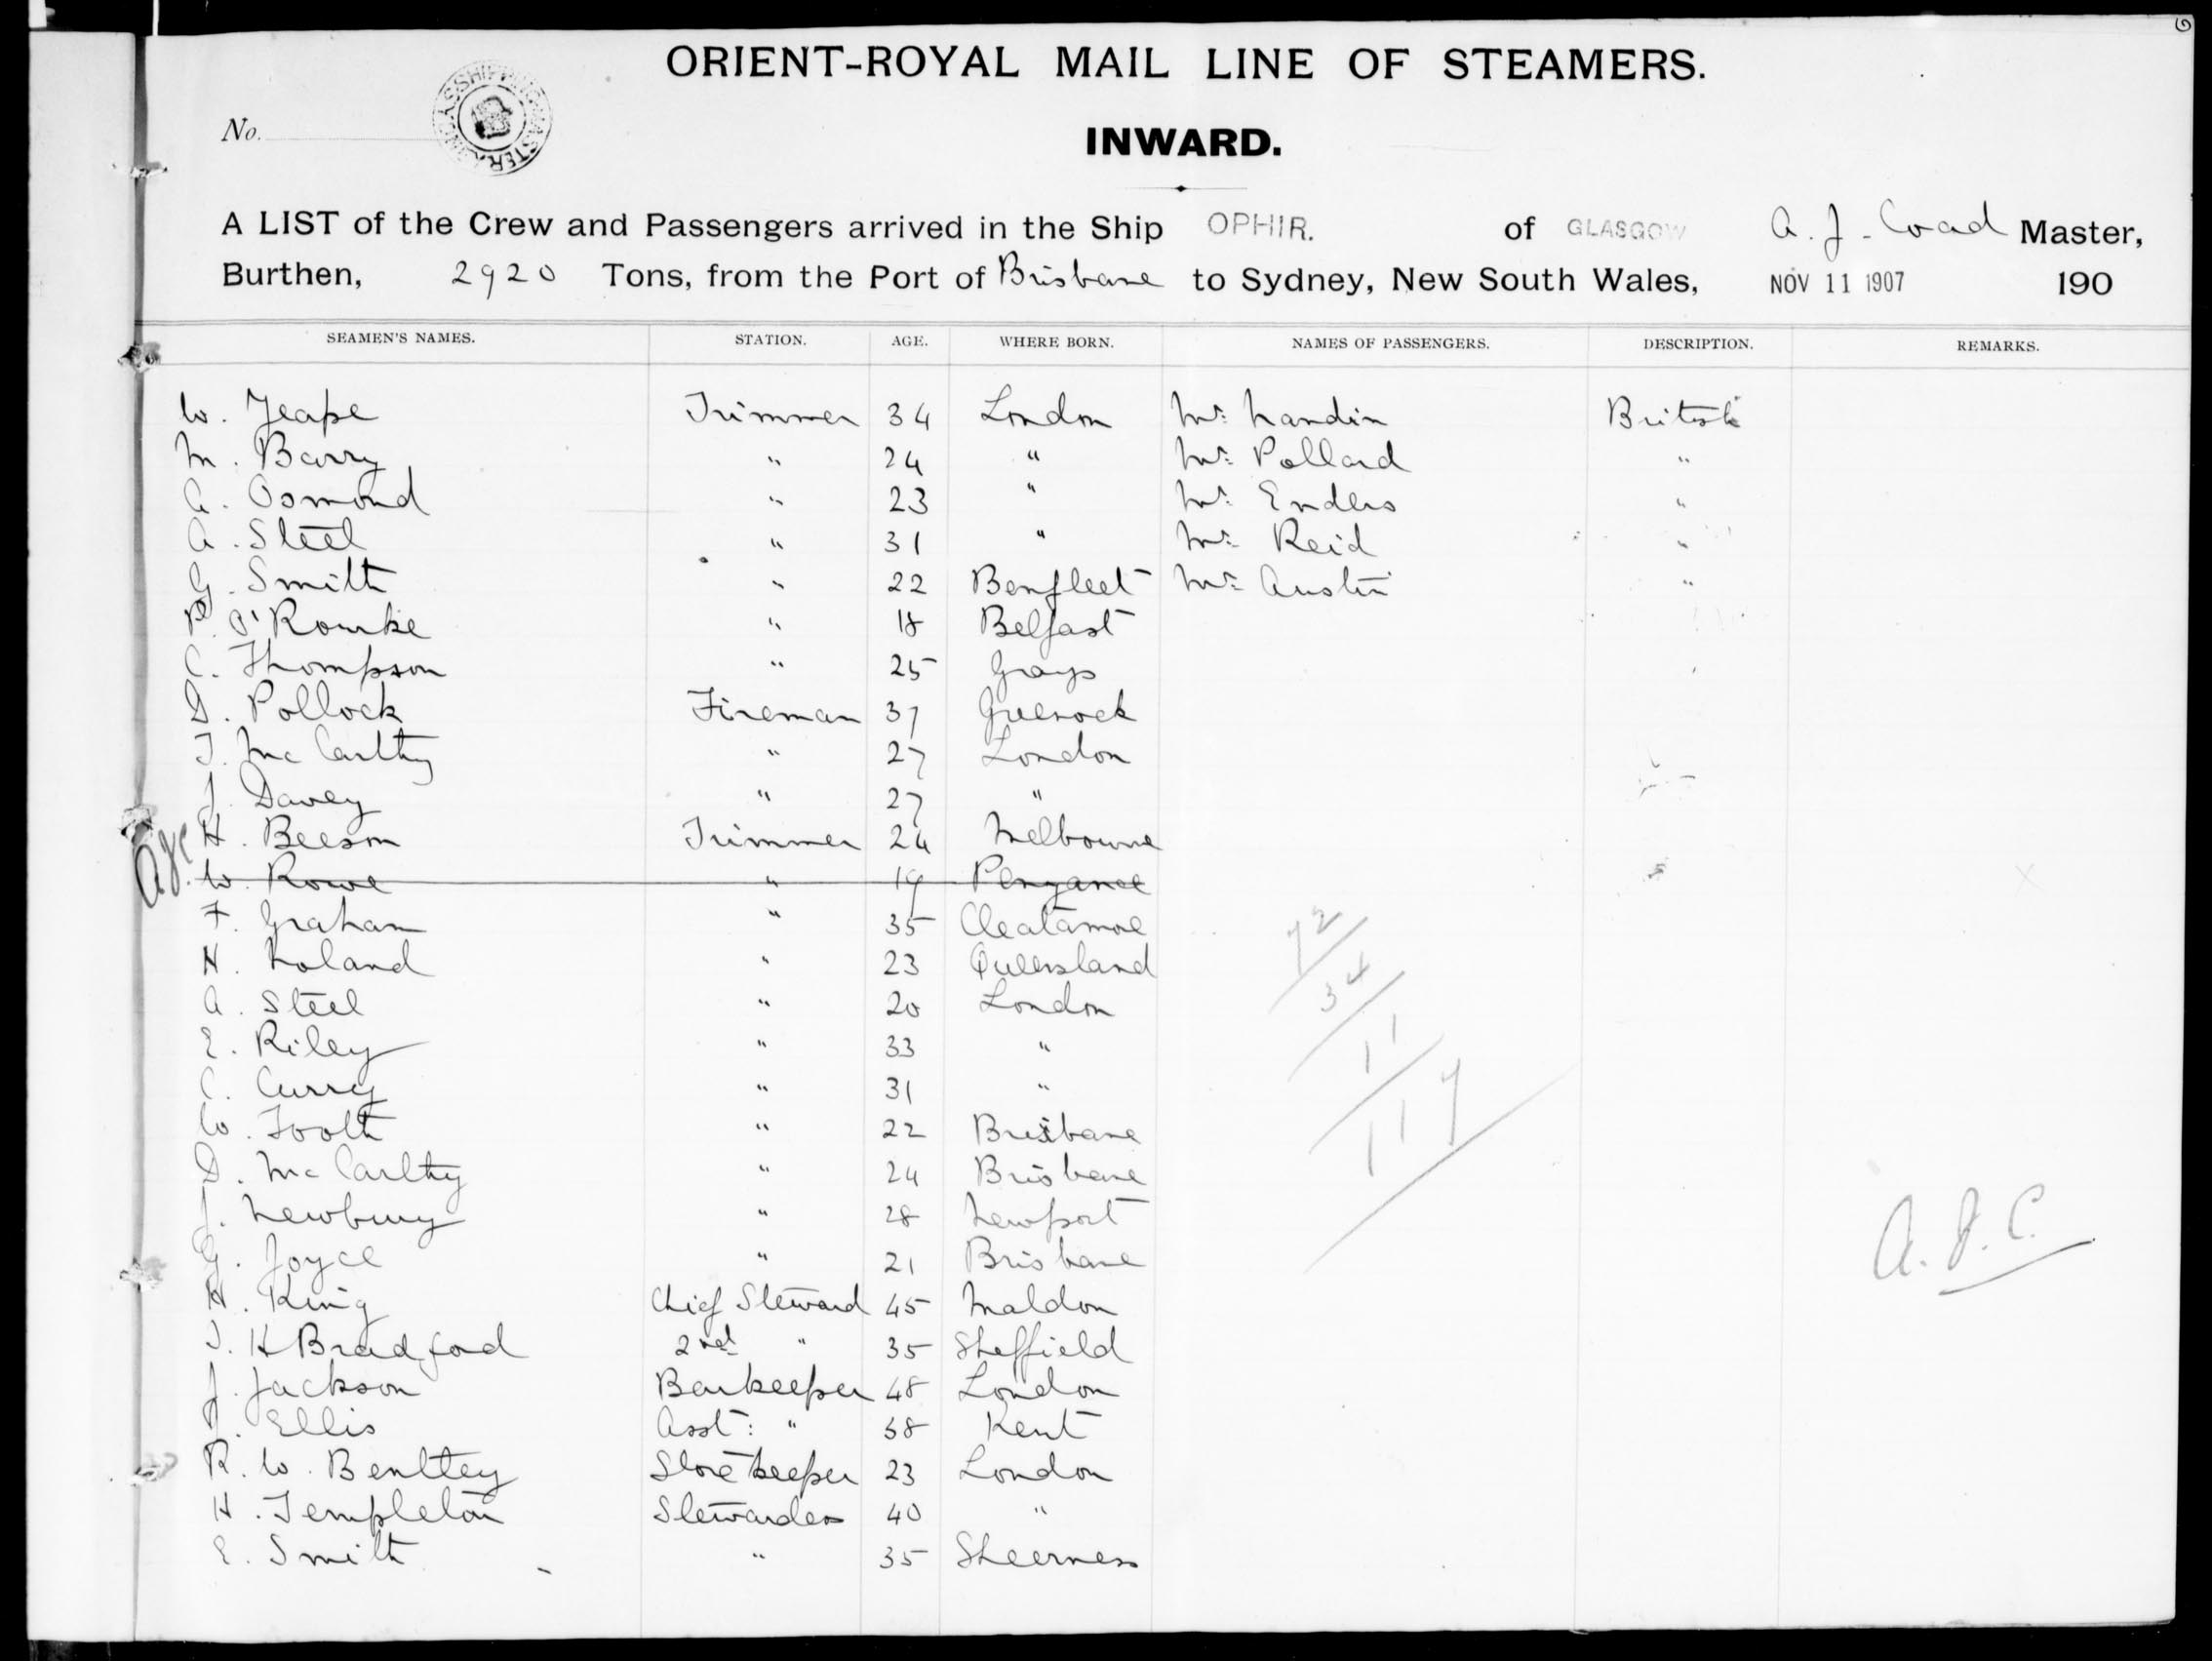 ORIENT-ROYAL MAIL LINE OF STEAMERS.
No.
INWARD.
A LIST of the Crew and Passengers arrived in the Ship OPHIR. of GLASGOW A. J. Coad Master,
Burthen, 2920 Tons, from the Port of Brisbane to Sydney, New South Wales, NOV 11 1907 190
SEAMEN'S NAMES. STATION. AGE. WHERE BORN. NAMES OF PASSENGERS. DESCRIPTION. REMARKS.
W. Yeape Trimmer 34 London Mr. Nandin British
M. Barry " 24 " Mr. Pollard "
A. Osmond " 23 " Mr. Enders "
A. Steel " 31 " Mr. Reid "
G. Smith " 22 Benfleet Mr. Austin "
P. O'Rourke " 18 Belfast
C. Thompson " 25 Grays
D. Pollock Fireman 37 Greenock
J. McCarthy " 27 London
J. Davey " 27 "
H. Beeson Trimmer 24 Melbourne
AJC W. Rowe " 19 Penzance
F. Graham " 35 Cleatamore
H. Noland " 23 Queensland
A. Steel " 20 London
E. Riley " 33 "
C. Curry " 31 "
W. Tooth " 22 Brisbane
D. McCarthy " 24 Brisbane
J. Newbury " 28 Newport
G. Joyce " 21 Brisbane
H. King Chief Steward 45 Maldon
J. H Bradford 2nd " 35 Sheffield
J. Jackson Barkeeper 48 London
A. Ellis Asst: " 38 Kent
R. W. Benttey Storekeeper 23 London
H. Templeton Stewardess 40 "
E. Smith " 35 Sheerness
72
34
11
117
A. J. C.